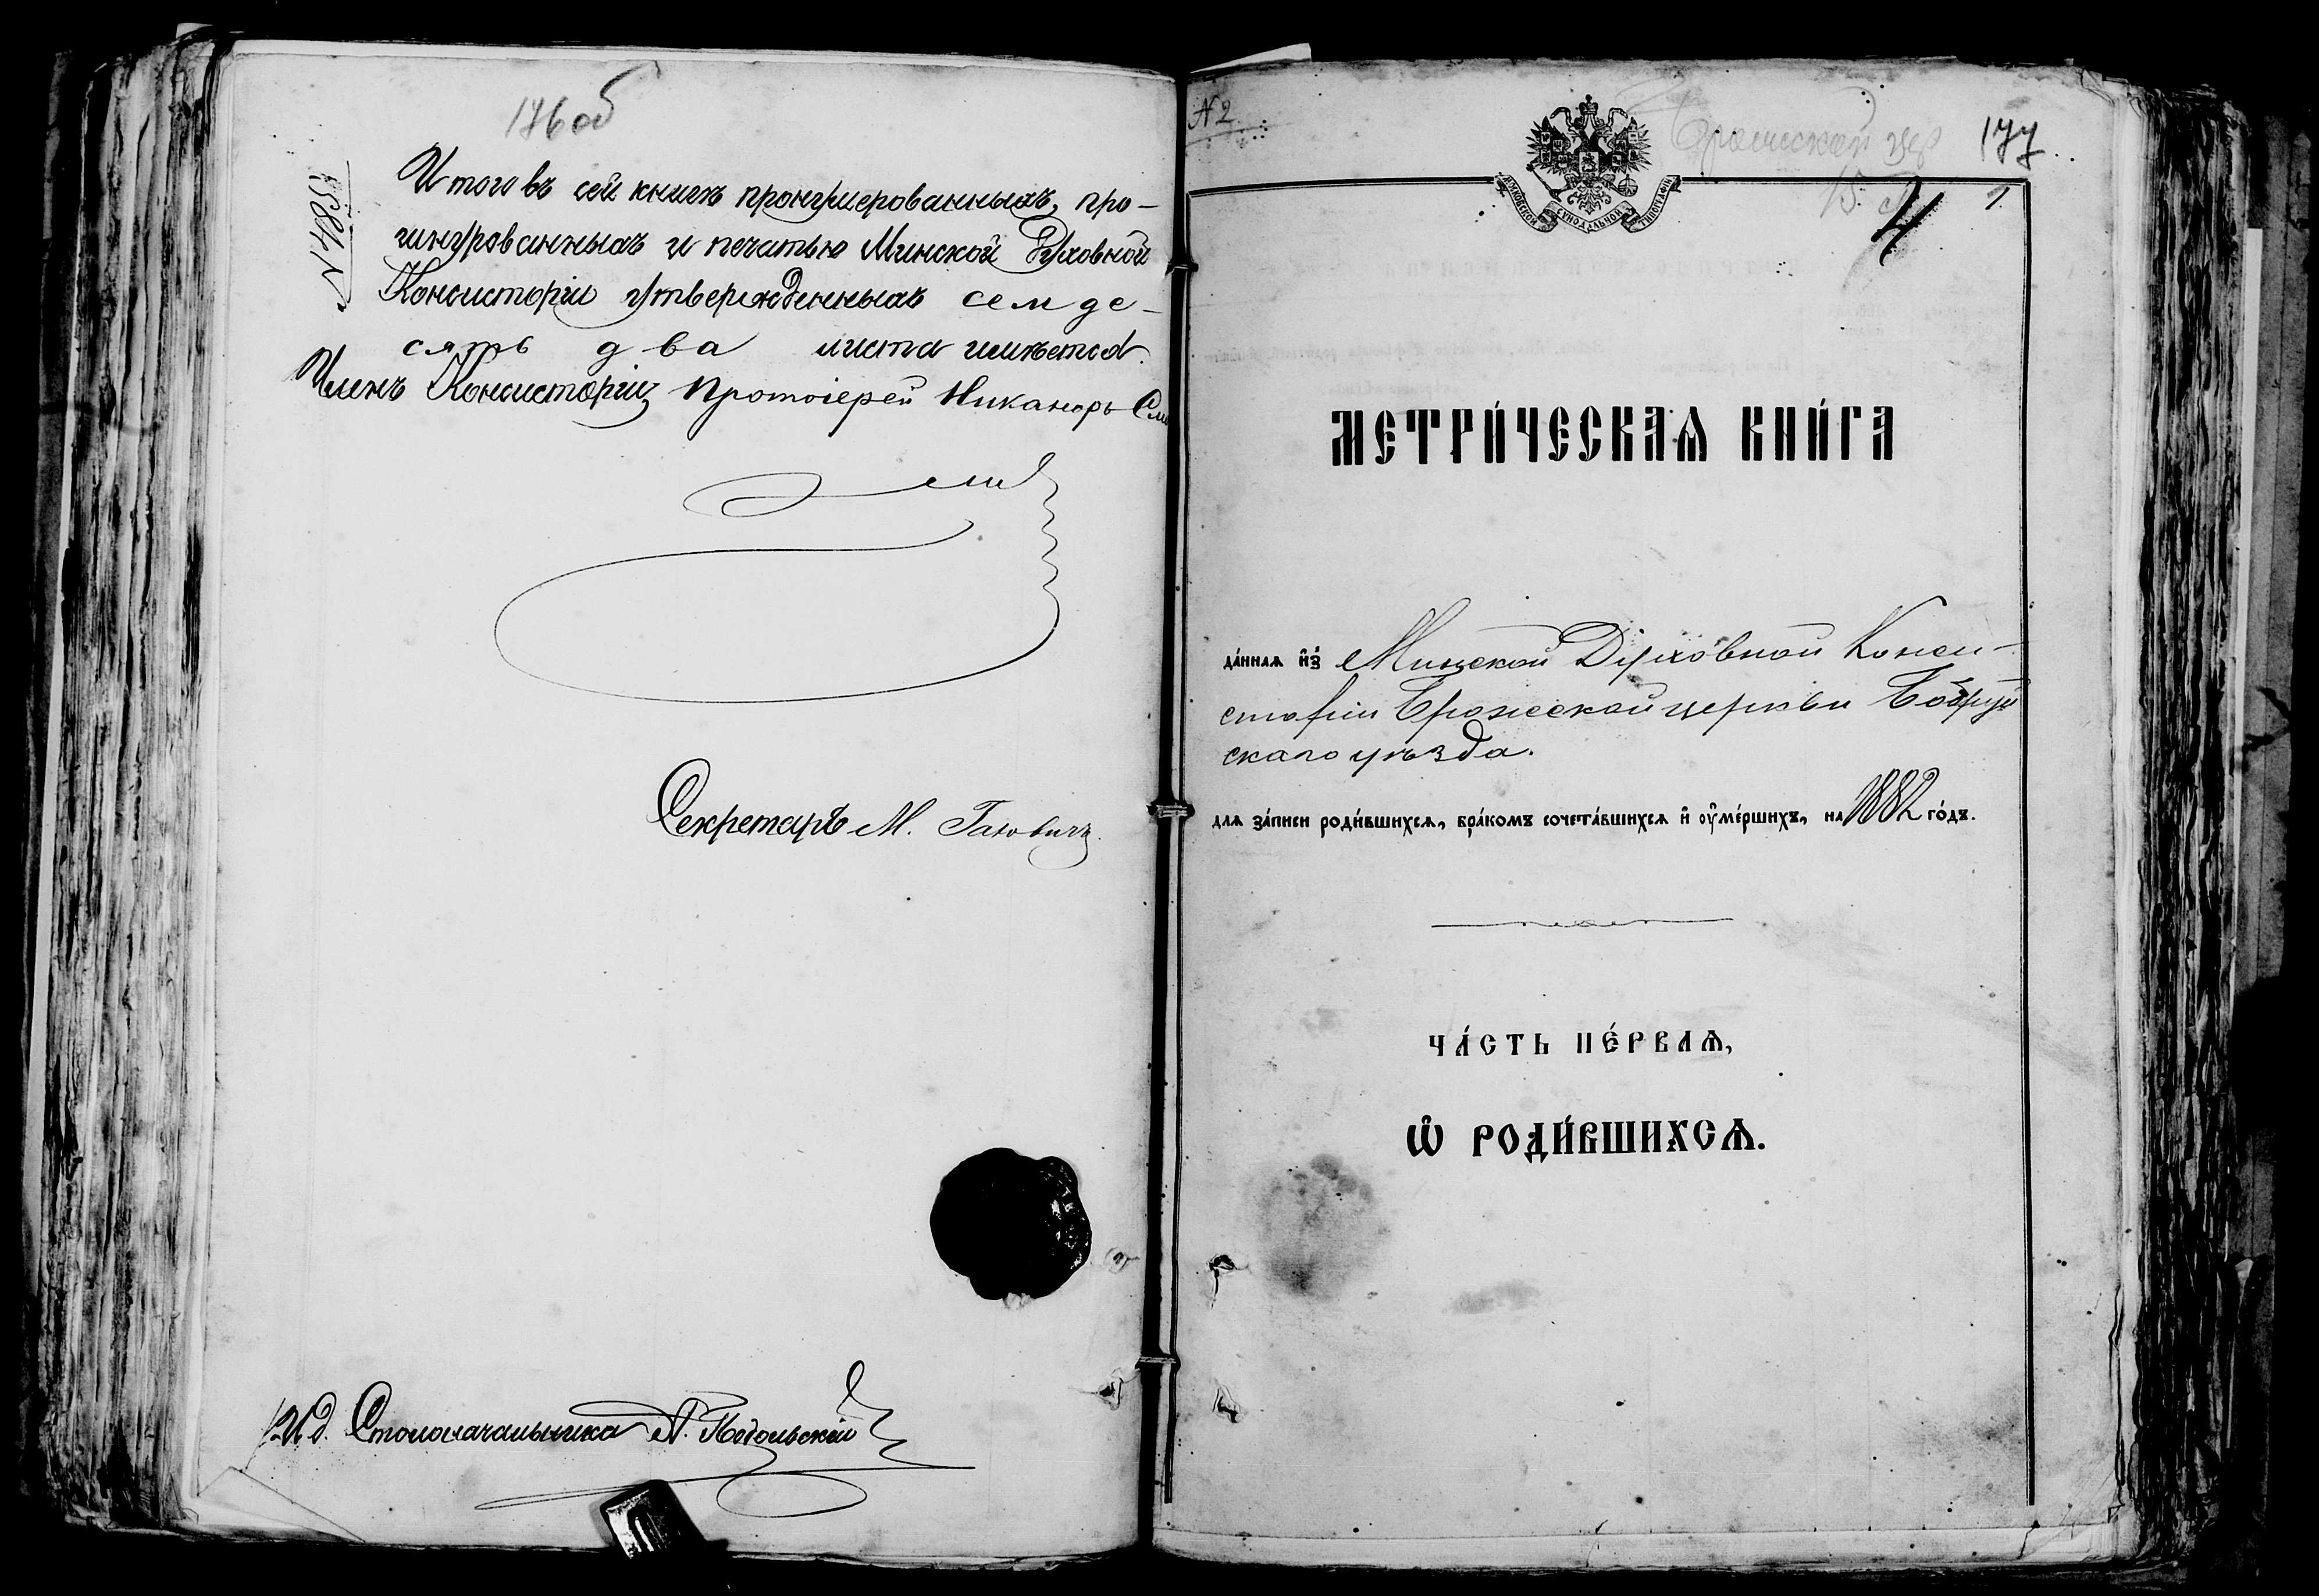 176 об
Итого въ сей книгѣ пронумерованныхъ, про-
шнурованныхъ и печатью Минской Духовной
Консисторіи утвержденныхъ семде-
сятъ два листа имѣется.
Членъ Консисторіи, Протоіерей Никаноръ
Секретарь М.
И.д. Столоначальника А. Подольскій
N 2
177
Брожской цер
4
1
МОСКОВСКОЙ СѴНОДАЛЬНОЙ ТѴПОГРАФІИ
МЕТРИ́ЧЕСКАѦ КНИ́ГА
да́ннаѧ и҆з̾ Минской Духовной Конси-
сторіи Брожской церкви Бобруй
скаго уѣзда.
для за́писи роди́вшихсѧ, бра́комъ сочета́вшихсѧ и҆ ᲂу҆ме́ршихъ, на 1882 го́дъ.
ЧА́СТЬ ПЕ́РВАѦ,
Ѽ РОДИ́ВШИХСѦ.